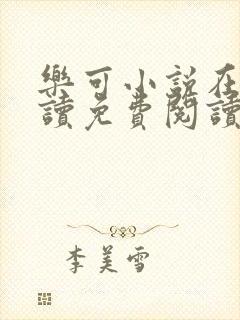 樂可小說在
讀免費閱讀
李美雪